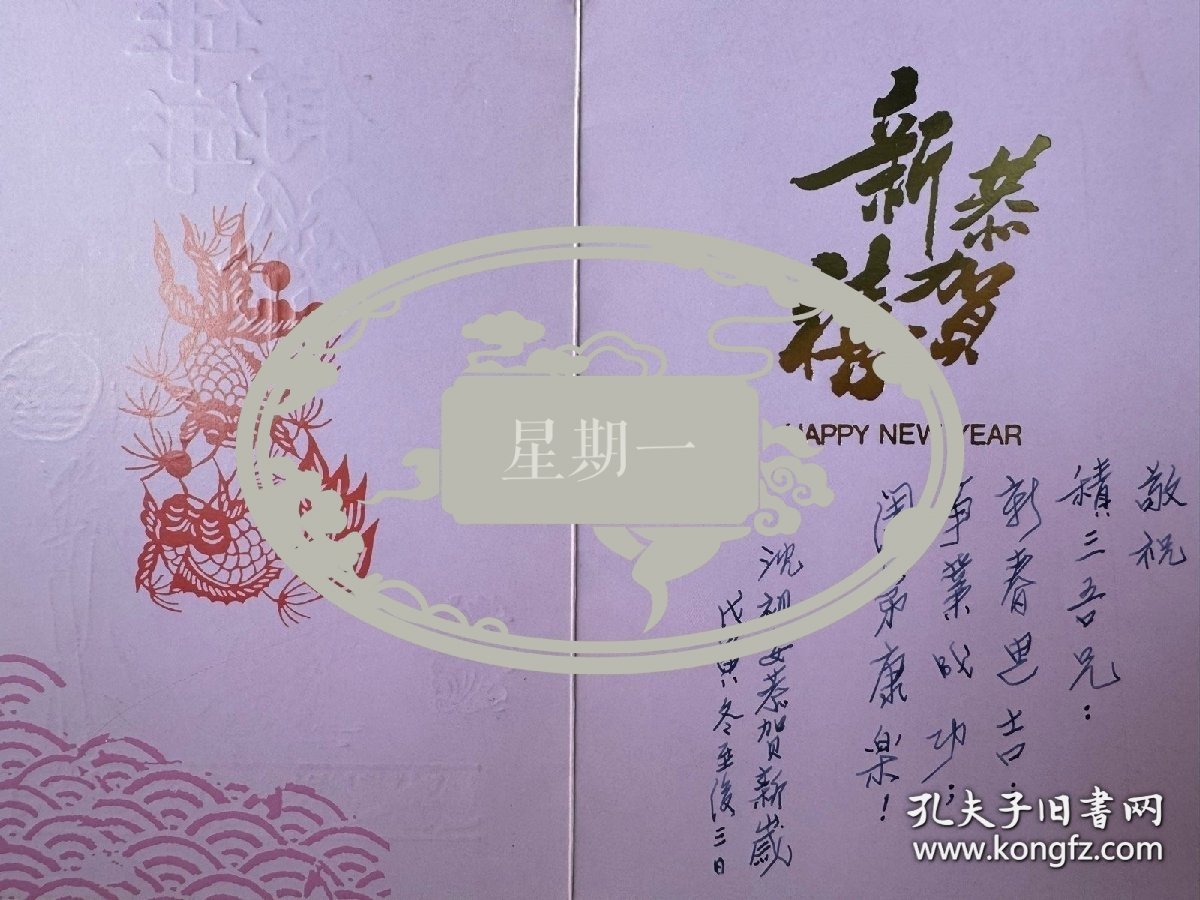 恭賀
新禧
HAPPY NEW YEAR
敬祝
積三吾兄：
新春迪吉；
事業成功；
闔第康樂！
沈初
恭賀新歲
戊寅冬至後三日
星期一
孔夫子旧书网
www.kongfz.com
年年